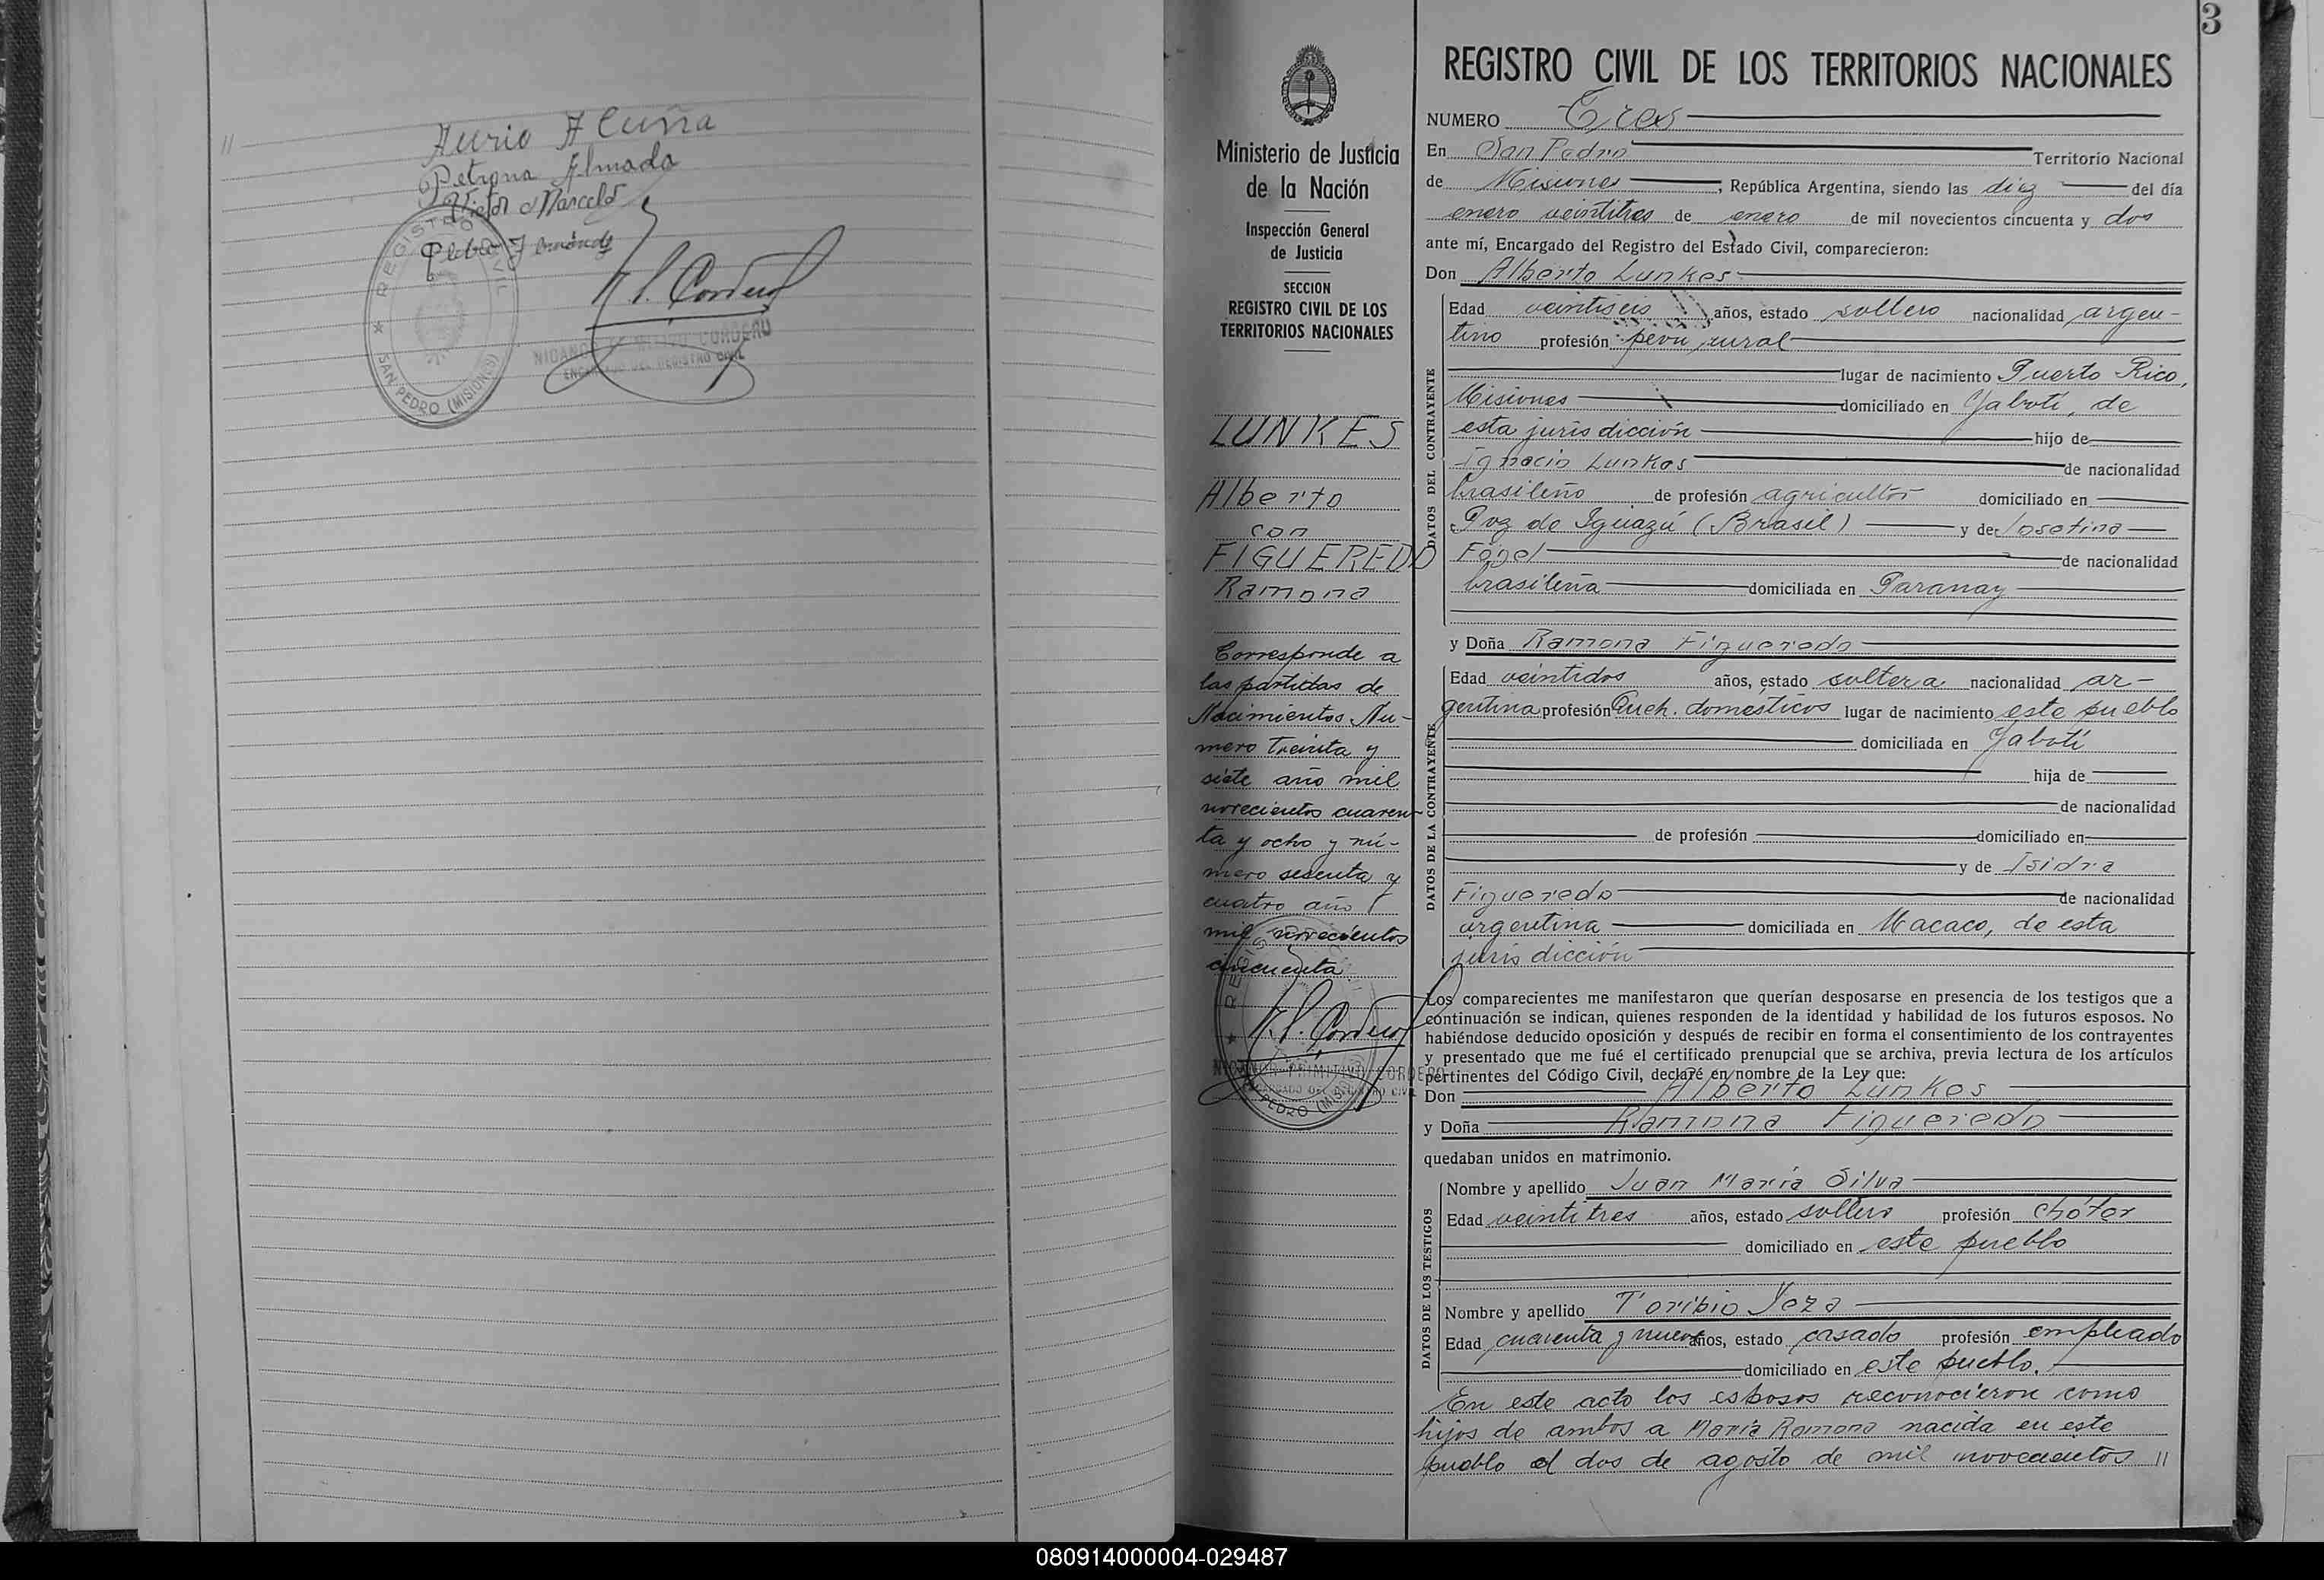 //
Aurio Acuña
Petrona Almada
Victor Marcelo
REGISTRO CIVIL
SAN PEDRO (MISIONES)
N. P. Cordero
NICANOR PRIMITIVO CORDERO
ENCARGADO DEL REGISTRO CIVIL
3
Ministerio de Justicia
de la Nación
Inspección General
de Justicia
SECCION
REGISTRO CIVIL DE LOS
TERRITORIOS NACIONALES
LUNKES
Alberto
con
FIGUEREDO
Ramona
Corresponde a
las partidas de
Nacimientos Nu-
mero treinta y
siete año mil
novecientos cuaren-
ta y ocho y nú-
mero sesenta y
cuatro año
mil novecientos
cincuenta
N. P. Cordero
NICANOR PRIMITIVO CORDERO
ENCARGADO DEL REGISTRO CIVIL
PEDRO (MISIONES)
REGISTRO CIVIL DE LOS TERRITORIOS NACIONALES
NUMERO Tres
En San Pedro Territorio Nacional
de Misiones, República Argentina, siendo las diez del día
enero veintitres de enero de mil novecientos cincuenta y dos
ante mí, Encargado del Registro del Estado Civil, comparecieron:
Don Alberto Lunkes
DATOS DEL CONTRAYENTE
Edad veintiseis años, estado soltero nacionalidad argen-
tino profesión peón rural
lugar de nacimiento Puerto Rico,
Misiones domiciliado en Yabotí, de
esta jurisdicción hijo de
Ignacio Lunkes de nacionalidad
brasileño de profesión agricultor domiciliado en
Foz do Iguazú (Brasil) y de Josefina
Fogel de nacionalidad
brasileña domiciliada en Paranay
y Doña Ramona Figueredo
DATOS DE LA CONTRAYENTE
Edad veintidos años, estado soltera nacionalidad ar-
gentina profesión Queh. domésticos lugar de nacimiento este pueblo
domiciliada en Yabotí
hija de
de nacionalidad
de profesión domiciliado en
y de Isidra
Figueredo de nacionalidad
argentina domiciliada en Macaco, de esta
jurisdicción
Los comparecientes me manifestaron que querían desposarse en presencia de los testigos que a
continuación se indican, quienes responden de la identidad y habilidad de los futuros esposos. No
habiéndose deducido oposición y después de recibir en forma el consentimiento de los contrayentes
y presentado que me fué el certificado prenupcial que se archiva, previa lectura de los artículos
pertinentes del Código Civil, declaré en nombre de la Ley que:
Don Alberto Lunkes
y Doña Ramona Figueredo
quedaban unidos en matrimonio.
DATOS DE LOS TESTIGOS
Nombre y apellido Juan María Silva
Edad veintitres años, estado soltero profesión chófer
domiciliado en este pueblo
Nombre y apellido Toribio Vera
Edad cuarenta y nueve años, estado casado profesión empleado
domiciliado en este pueblo.
En este acto los esposos reconocieron como
hijos de ambos a María Ramona nacida en este
pueblo el dos de agosto de mil novecientos //
080914000004-029487